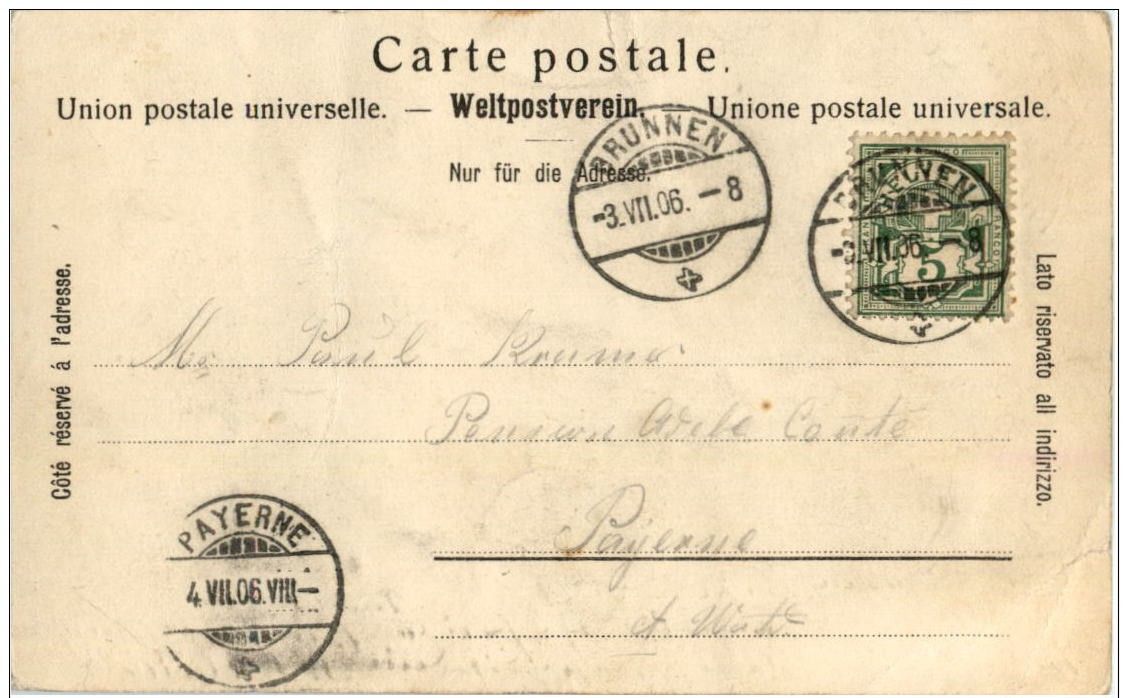 Carte postale.
Union postale universelle. — Weltpostverein. — Unione postale universale.
Nur für die Adresse.
Côté réservé á l'adresse.
Lato riservato all indirizzo.
BRUNNEN
-3.VII.06.-8
BRUNNEN
-3.VII.06.-8
FRANCO
5
Mr Paul
Pension Adele Conte
Payerne
PAYERNE
4.VII.06.VIII-